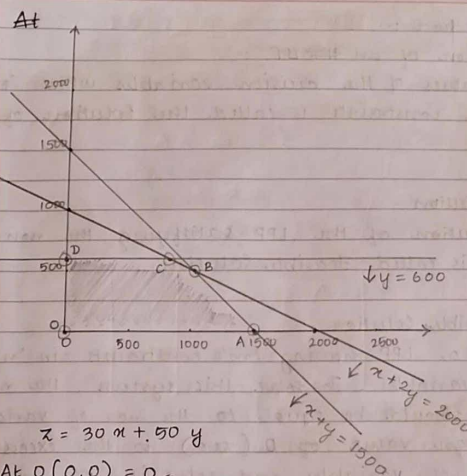 At
2000
1500
1000
D
500
C
B
↓y = 600
O
0
500
1000
A
1500
2000
2500
↙ x+2y = 2000
↙ x+y = 1500
z = 30x + 50y
At O(0,0) = 0